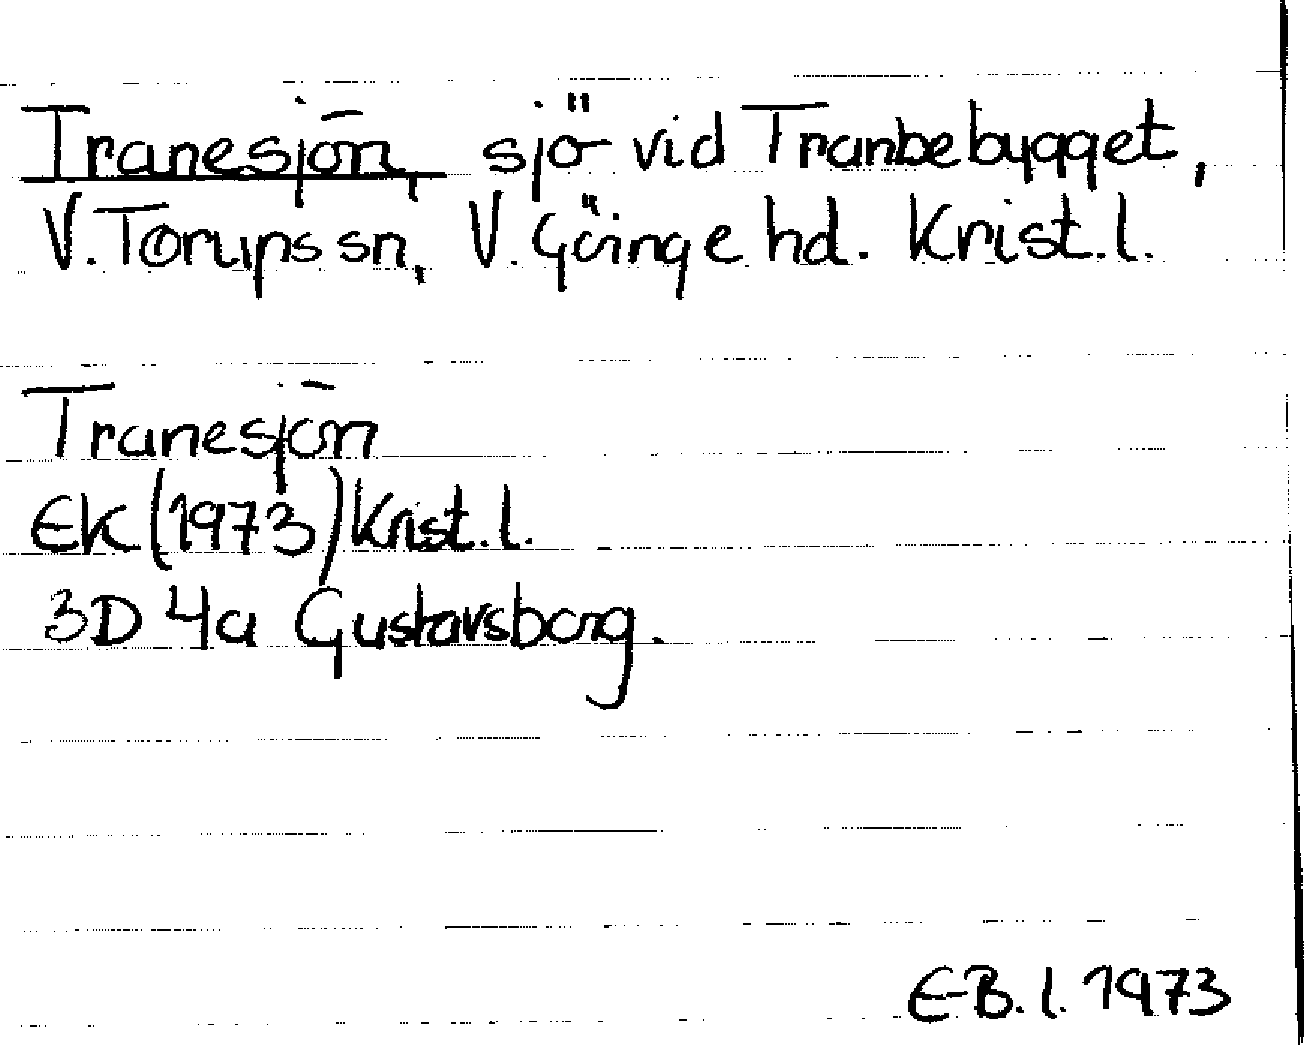 Tranesjön, sjö vid Tranbebygget,
V. Torups sn, V. Göinge hd. Krist. l.
Tranesjön
EK (1973) Krist. l.
3D 4a Gustavsborg.
E-B. l. 1973